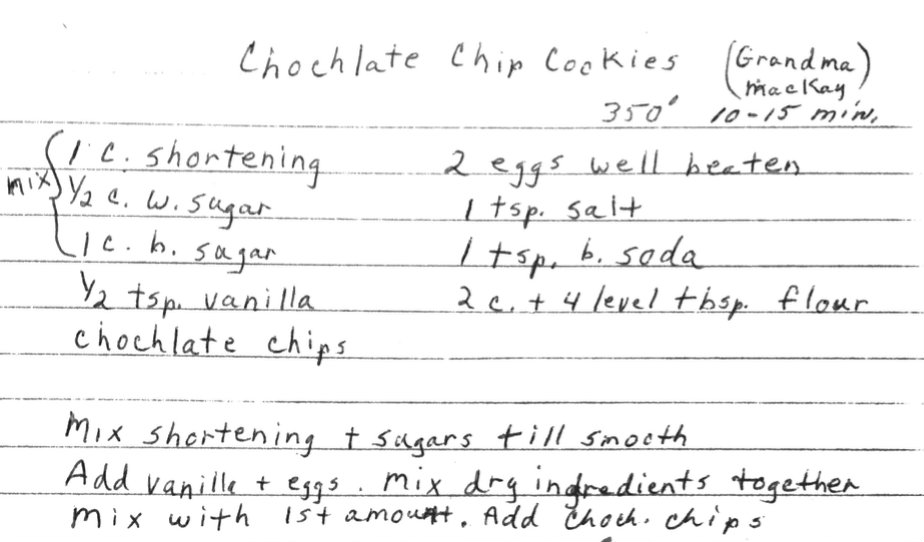 Chochlate Chip Cookies (Grandma
MacKay)
350° 10-15 min.
1 c. shortening 2 eggs well beaten
mix ½ c. w. sugar 1 tsp. salt
1 c. b. sugar 1 tsp. b. soda
½ tsp. vanilla 2 c. + 4 level tbsp. flour
chochlate chips
Mix shortening + sugars till smooth
Add vanilla + eggs. mix dry ingredients together
mix with 1st amount. Add choch. chips